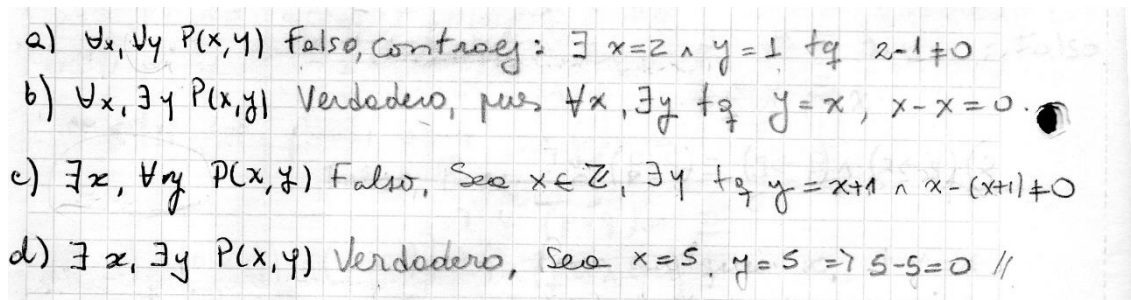 a) ∀x, ∀y P(x,y) Falso, contraej: ∃ x=2 ∧ y=1 tq 2-1≠0
b) ∀x, ∃y P(x,y) Verdadero, pues ∀x, ∃y tq y=x, x-x=0.
c) ∃x, ∀y P(x,y) Falso, Sea x∈ℤ, ∃y tq y=x+1 ∧ x-(x+1)≠0
d) ∃x, ∃y P(x,y) Verdadero, Sea x=5, y=5 => 5-5=0 //